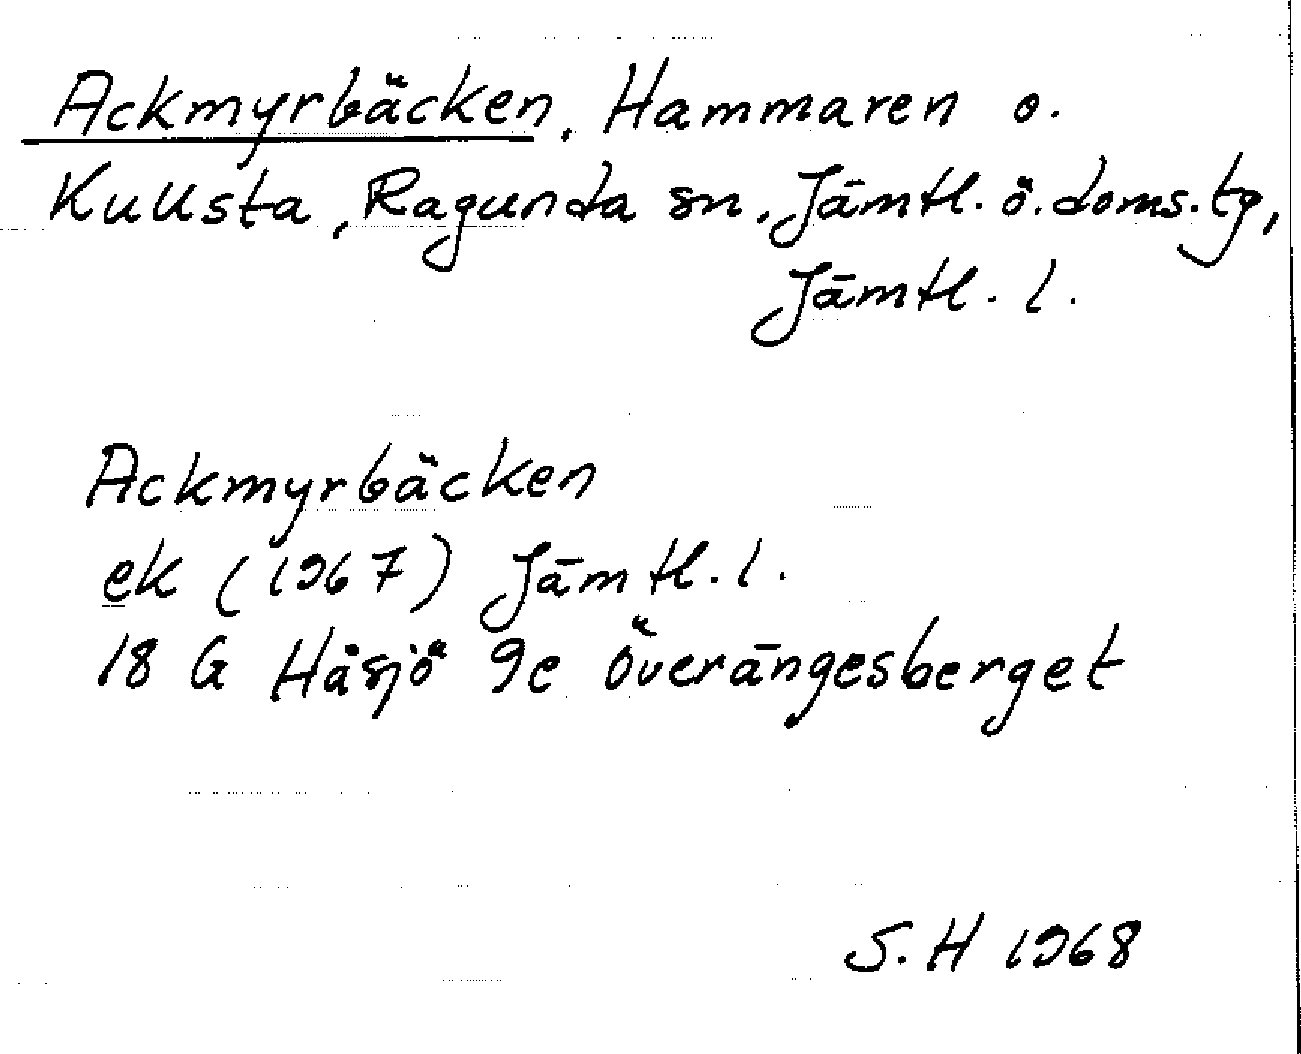 Ackmyrbäcken, Hammaren o.
Kullsta, Ragunda sn, Jämtl. ö. doms.tg,
Jämtl. l.
Ackmyrbäcken
ek (1967) Jämtl. l.
18 G Håsjö 9e Överängesberget
S.H 1968